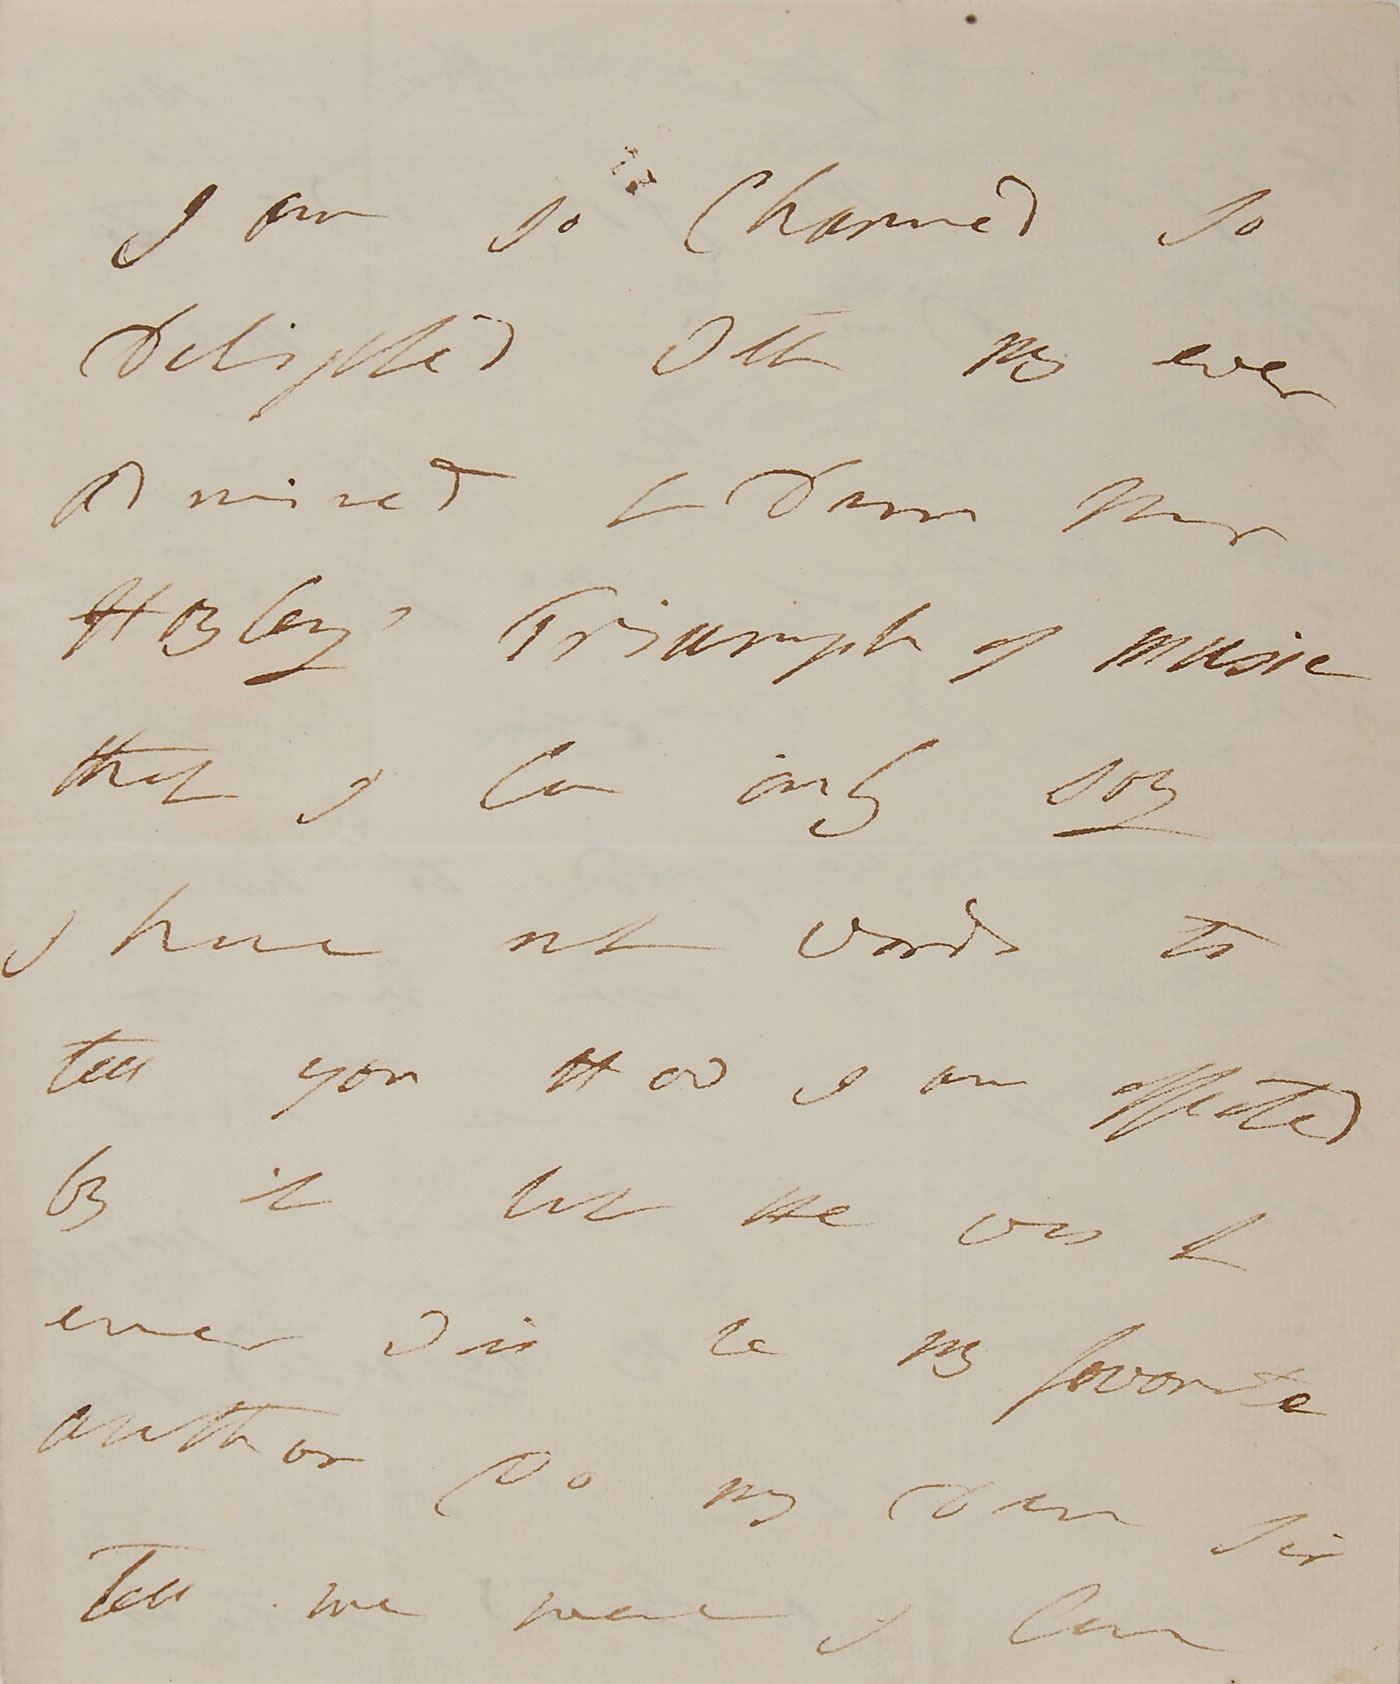 I am so Charmed So
Delighted With my ever
Admired & Dear Mr
Hayley's Triumph of music
that I Can only say
I have not Words to
tell you How I am affected
by it but He was &
ever Will be my favorite
author Do my Dear Sir
Tell me were I Can